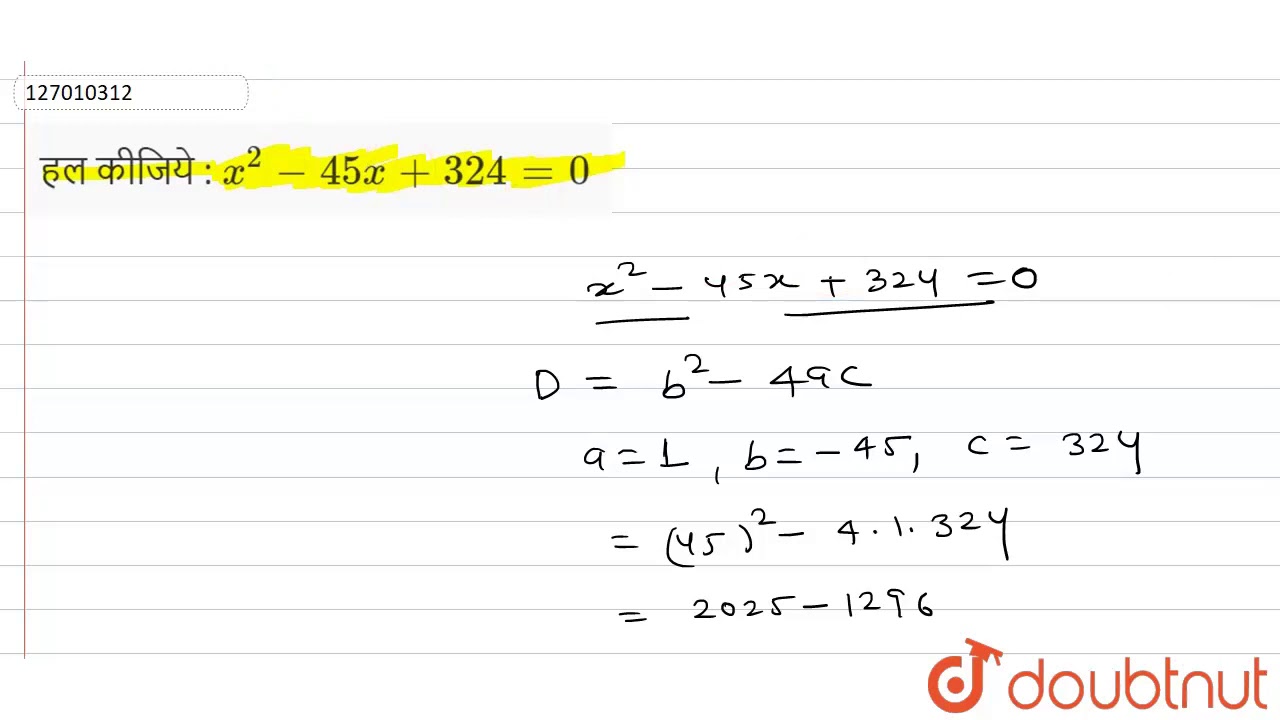 127010312
हल कीजिये : x² − 45x + 324 = 0
x² − 45x + 324 = 0
D = b² − 4ac
a = 1, b = −45, c = 324
= (45)² − 4·1·324
= 2025 − 1296
doubtnut